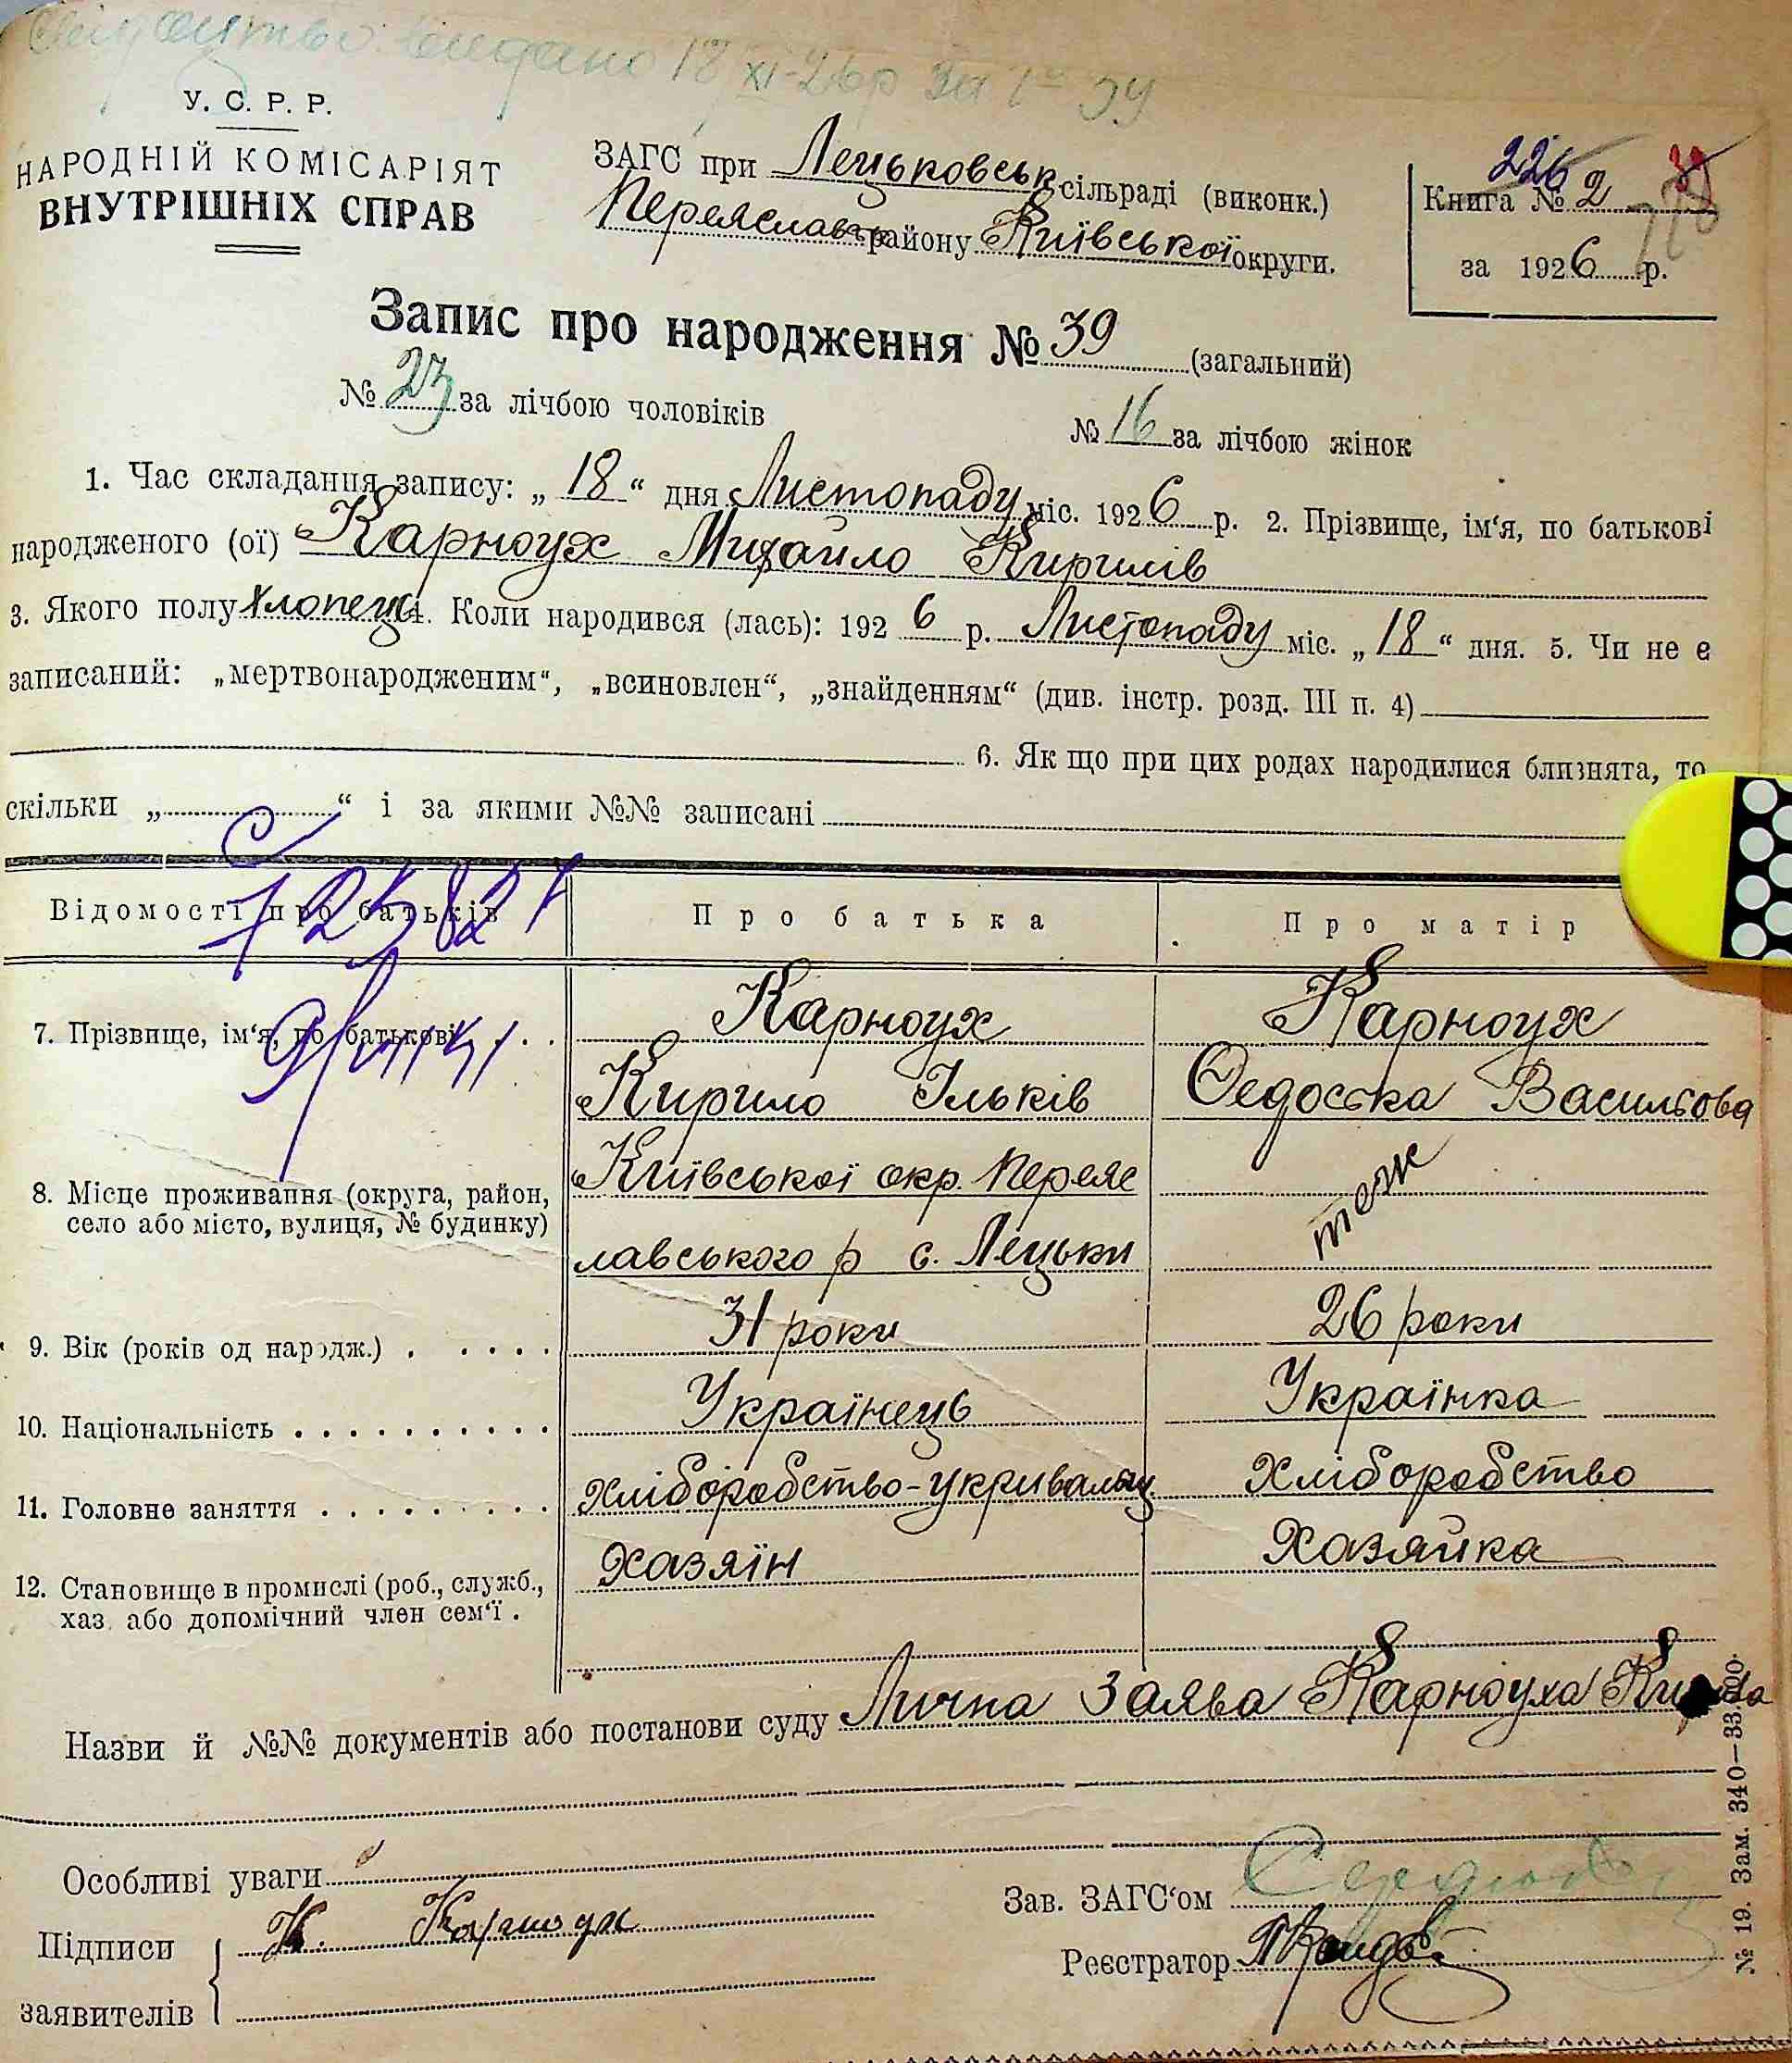 Свідоцтво видано 18 XI-26р за № 39
У. С. Р. Р.
НАРОДНІЙ КОМІСАРІЯТ
ВНУТРІШНІХ СПРАВ
ЗАГС при Лецьковськ сільраді (виконк.)
Переяславськ району Київської округи.
226
Книга № 2
за 1926 р.
Запис про народження № 39 (загальний)
№ 23 за лічбою чоловіків
№ 16 за лічбою жінок
1. Час складання запису: „ 18 “ дня Листопаду міс. 1926 р. 2. Прізвище, ім‘я, по батькові
народженого (ої) Карноух Михайло Кирилів
3. Якого полу Хлопець 4. Коли народився (лась): 1926 р. Листопаду міс. „ 18 “ дня. 5. Чи не є
записаний: „мертвонародженим“, „всиновлен“, „знайденням“ (див. інстр. розд. III п. 4)
6. Як що при цих родах народилися близнята, то
скільки „ “ і за якими №№ записані
Відомості про батьків
Про батька
Про матір
7. Прізвище, ім‘я, по батькові . . .
Карноух
Карноух
Кирило Ільків
Федоська Васильова
8. Місце проживання (округа, район,
село або місто, вулиця, № будинку)
Київської окр. Переяс
лавського р с. Лецьки
теж
9. Вік (років од народж.) . . . . .
31 роки
26 роки
10. Національність . . . . . . . . . .
Українець
Українка
11. Головне заняття . . . . . . . . .
Хліборобство-укривальщ.
Хліборобство
12. Становище в промислі (роб., служб.,
хаз. або допомічний член сем‘ї .
Хазяїн
Хазяйка
Назви й №№ документів або постанови суду Лична Заява Карноуха
Особливі уваги
Підписи
заявителів
К. Карноух
Зав. ЗАГС‘ом
Реєстратор
№ 19. Зам. 340—33.00